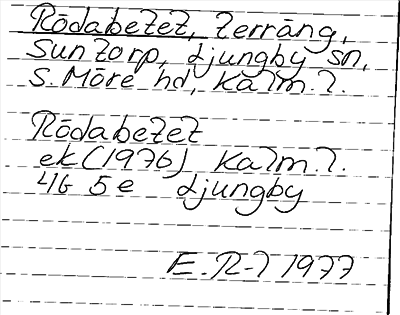 Rödabetet, terräng,
Suntorp, Ljungby sn,
S. Möre hd, Kalm. l.
Rödabetet
ek (1976) Kalm. l.
4G 5e Ljungby
E. R-l 1977